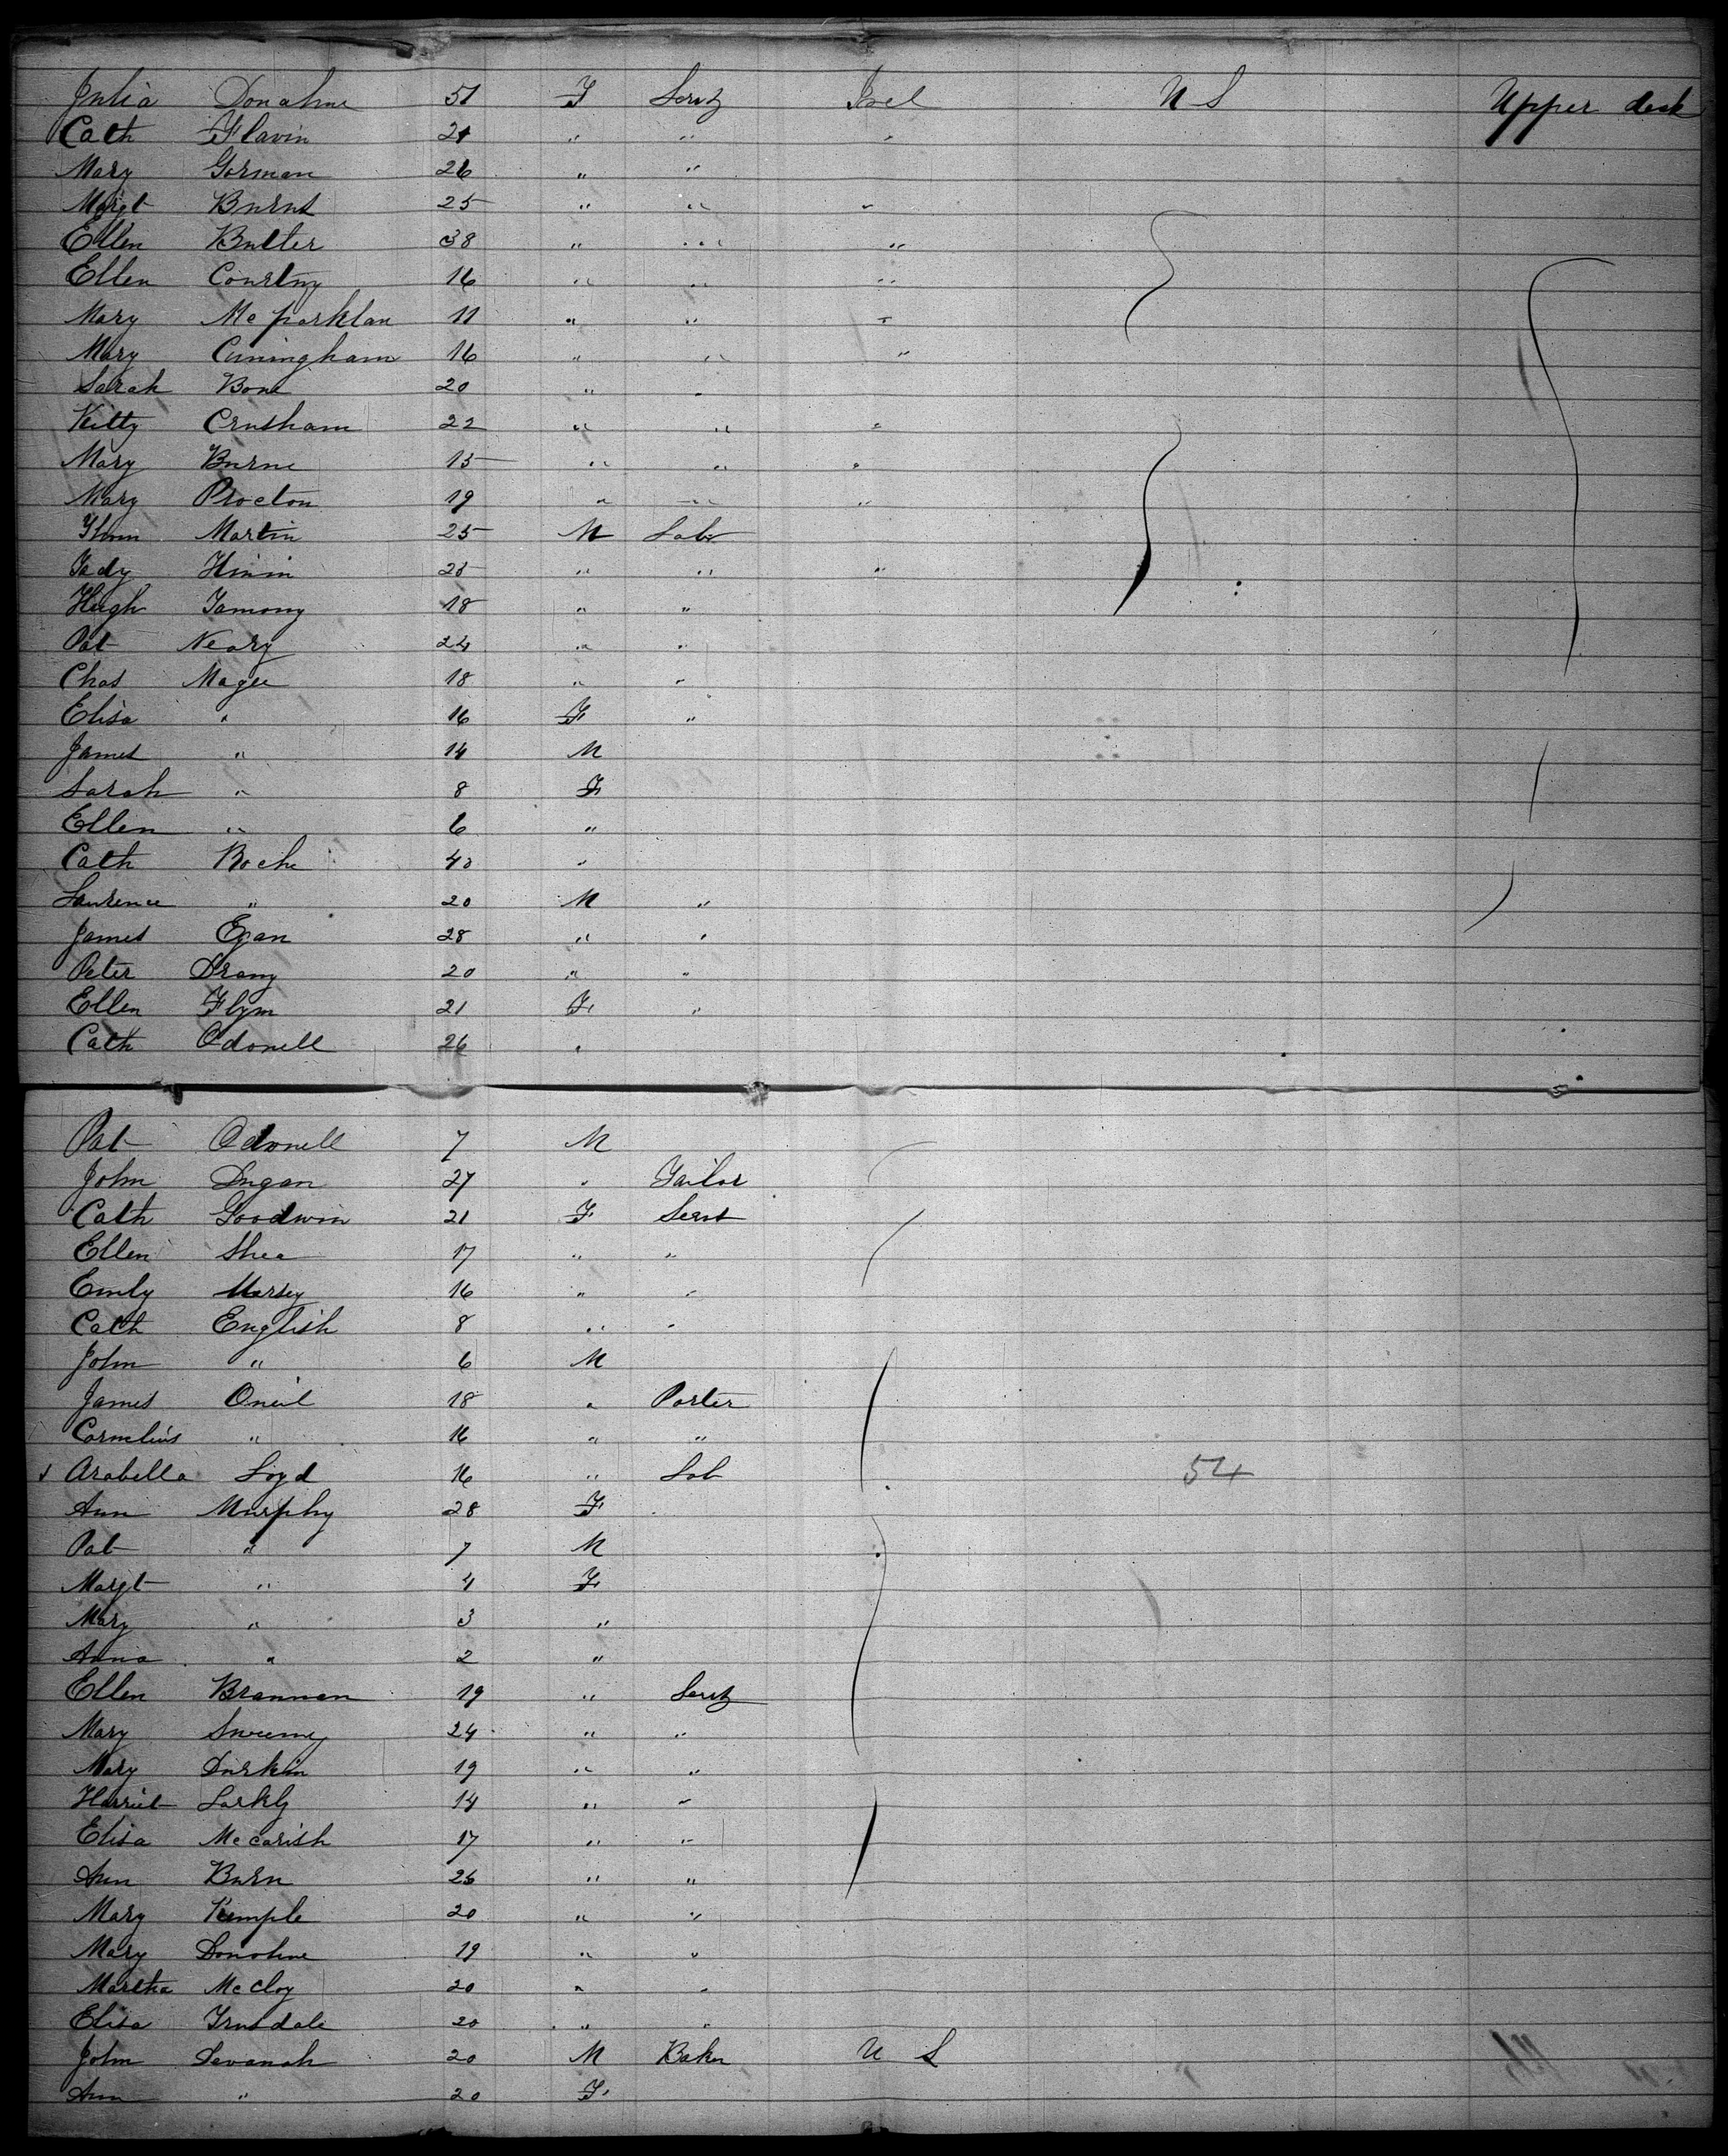 Julia Donahue 51 F Servt Irel U S Upper deck
Cath Flavin 21 " " "
Mary Gorman 26 " "
Margt Burns 25 " " "
Ellen Butler 38 " " "
Ellen Courtny 16 " " "
Mary Mc parklan 11 " " "
Mary Cuningham 16 " " "
Sarah Bone 20 " "
Kitty Crusham 22 " " "
Mary Burne 15 " " "
Mary Procton 19 " " "
Martin 25 M Labr
Tady Hinin 25 " " "
Hugh Tamony 18 " "
Pat Neary 24 " "
Chas Magee 18 " "
Elisa " 16 F "
James " 14 M
Sarah " 8 F
Ellen " 6 "
Cath Roche 40 "
Laurence " 20 M "
James Egan 28 " "
Peter Drany 20 " "
Ellen Flynn 21 F "
Cath Odonell 26 "
Pat Odonell 7 M
John Dugan 27 " Tailor
Cath Goodwin 21 F Servt
Ellen Shea 17 " "
Emily Marsey 16 " "
Cath English 8 " "
John " 6 M
James Oneil 18 " Porter
Cornelius " 16 " "
Arabella Loyd 16 " Lab 54
Ann Murphy 28 F
Pat " 7 M
Margt " 4 F
Mary " 3 "
Anna " 2 "
Ellen Brannan 19 " Servt
Mary Sweeney 24 " "
Mary Durkin 19 " "
Harriet Larkly 14 " "
Elisa Mc carish 17 " "
Ann Burn 25 " "
Mary Kemple 20 " "
Mary Donohue 19 " "
Martha Mc Cloy 20 " "
Elisa Trusdale 20 " "
John Savanah 20 M Baker U S
Ann " 20 F